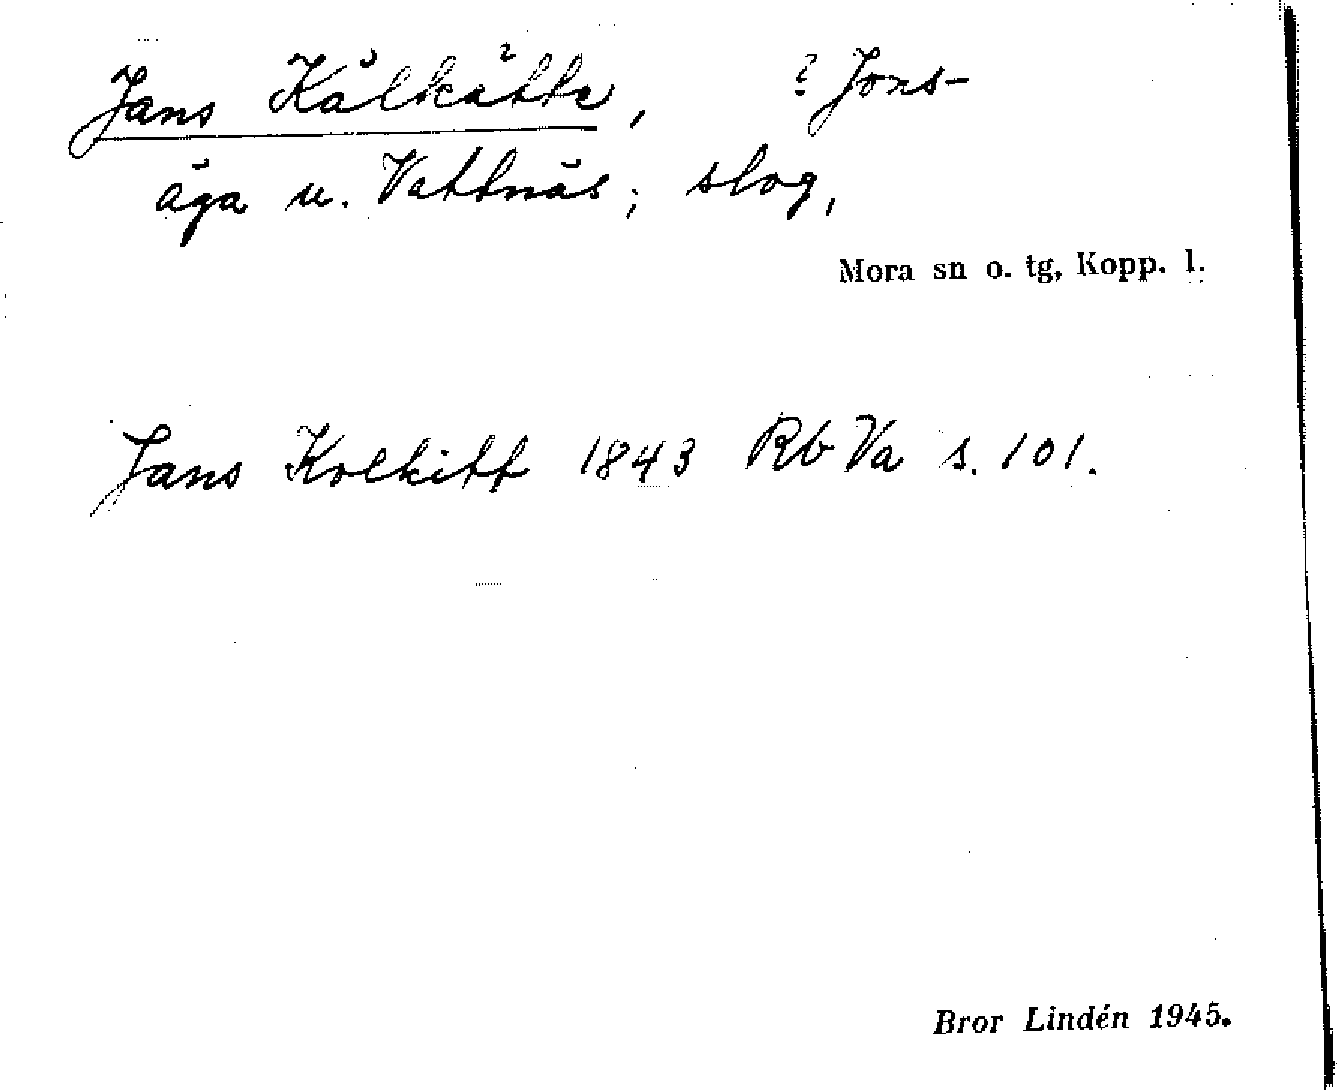 Jans Kålkätte, ? Jons-
äga u. Vattnäs; slog,
Mora sn o. tg, Kopp. l.
Jans Kolkitt 1843 Rb Va s. 101.
Bror Lindén 1945.